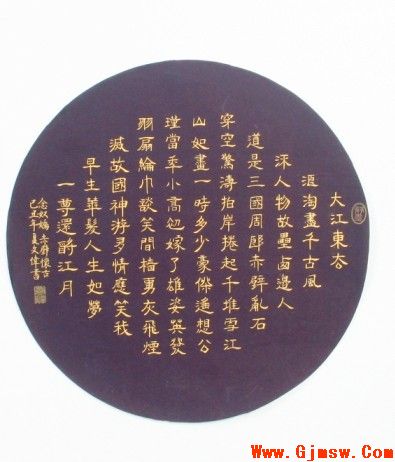 大江東去
浪淘盡千古風
流人物故壘西邊人
道是三國周郎赤壁亂石
穿空驚濤拍岸捲起千堆雪江
山如畫一時多少豪傑遙想公
瑾當年小喬初嫁了雄姿英發
羽扇綸巾談笑間檣虜灰飛煙
滅故國神游多情應笑我
早生華髮人生如夢
一尊還酹江月
念奴嬌 赤壁懷古
己丑年夏文偉書
Www.Gjmsw.Com